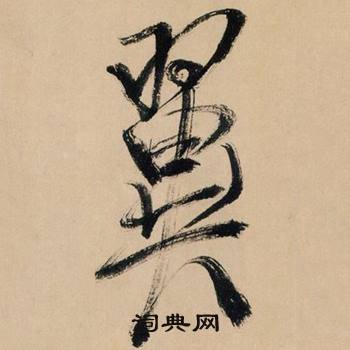 翼
词典网